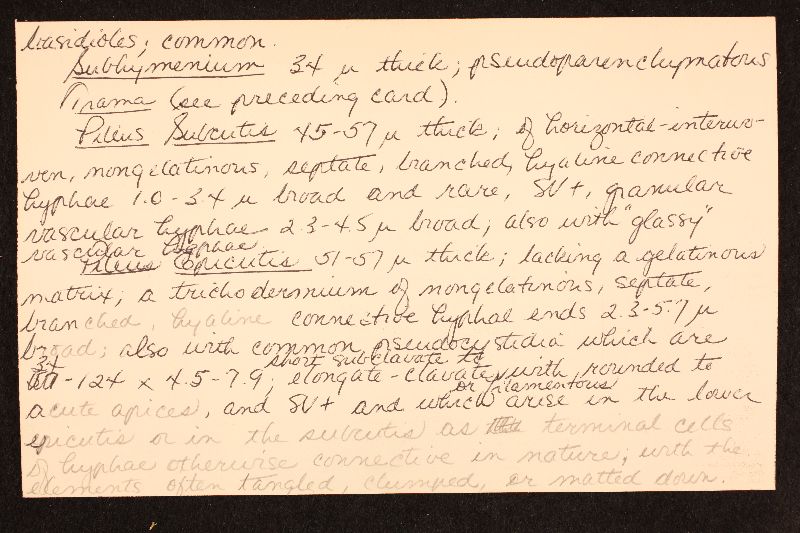 basidioles; common.
Subhymenium 34 µ thick; pseudoparenchymatous
Trama (see preceding card).
Pileus Subcutis 45-57 µ thick; of horizontal-interwo-
ven, nongelatinous, septate, branched, hyaline connective
hyphae 1.0-3.4 µ broad and rare, SV+, granular
vascular hyphae 2.3-4.5 µ broad; also with "glassy"
vascular hyphae.
Pileus Epicutis 51-57 µ thick; lacking a gelatinous
matrix; a trichodermium of nongelatinous, septate,
branched, hyaline connective hyphal ends 2.3-5.7 µ
broad; also with common pseudocystidia which are
34-124 x 4.5-7.9, short subclavate to elongate-clavate or filamentous, with rounded to
acute apices, and SV+ and which arise in the lower
epicutis or in the subcutis as terminal cells
of hyphae otherwise connective in nature; with the
elements often tangled, clumped, or matted down.